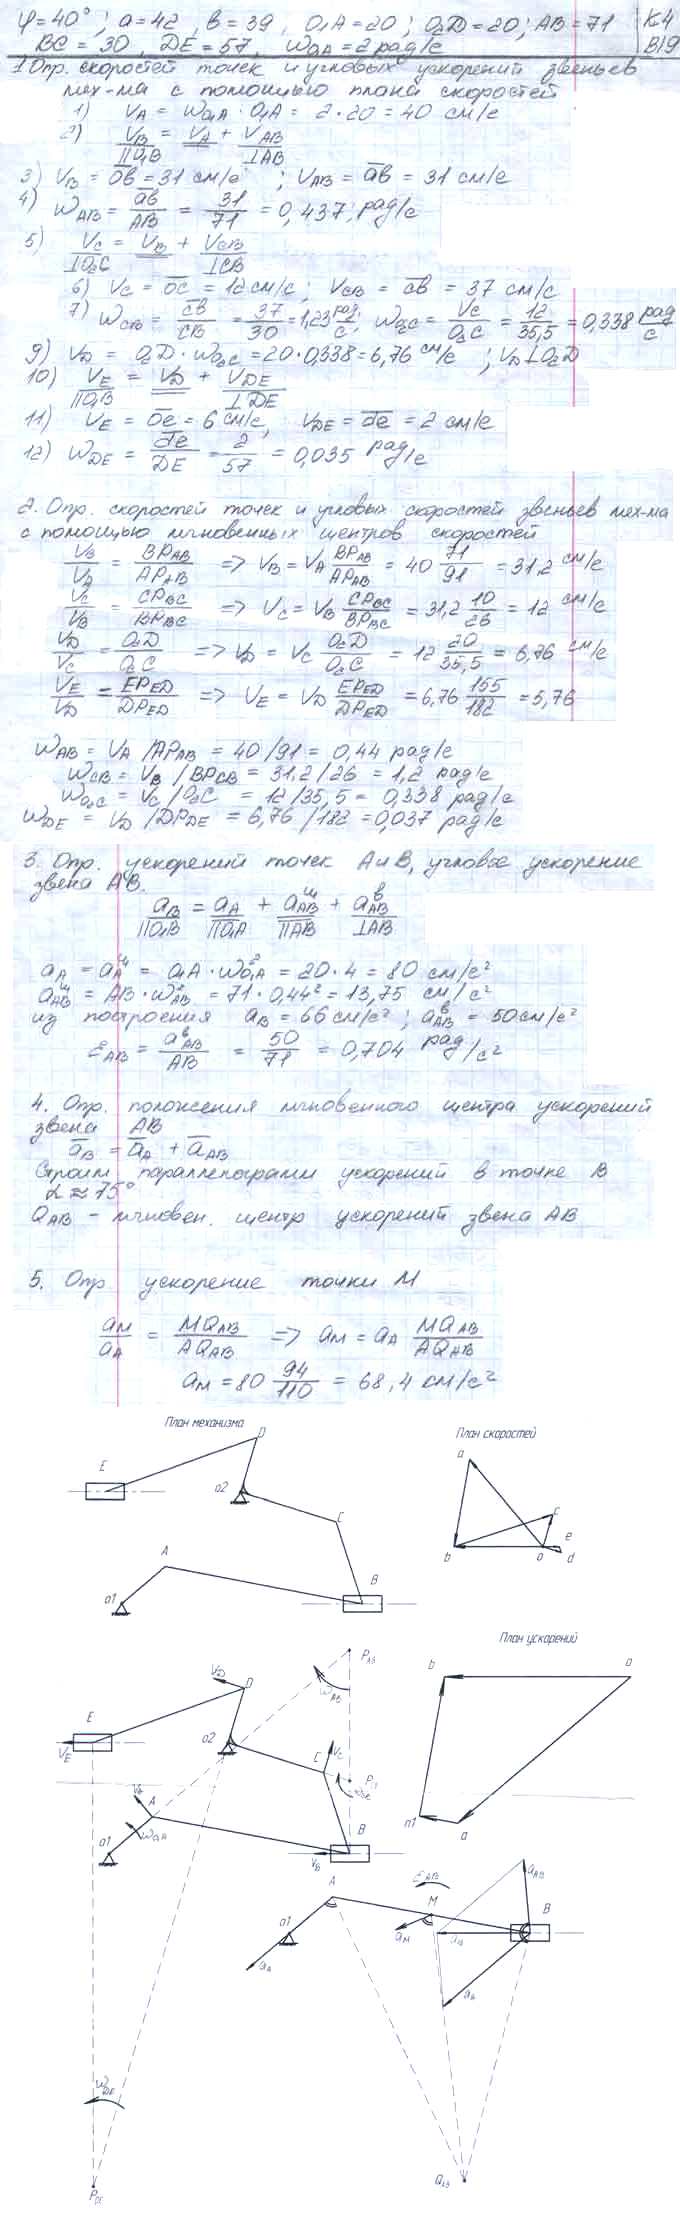 φ=40°; a=42, в=39, O₁A=20; O₂D=20; AB=71 | К4
BC=30, DE=57, ω₀₁A=2 рад/с | В19
1 Опр. скоростей точек и угловых ускорений звеньев
мех-ма с помощью плана скоростей
1) V_A = ω_O₁A · O₁A = 2·20 = 40 см/с
2) V_B/∥O₁B = V_A + V_AB/⊥AB
3) V_B = ōв = 31 см/с ; V_AB = āв = 31 см/с
4) ω_AB = āв/AB = 31/71 = 0,437, рад/с
5) V_C/⊥O₂C = V_B + V_CB/⊥CB
6) V_C = ōc = 12 см/с; V_CB = c̄в = 37 см/с
7) ω_CB = c̄в/CB = 37/30 = 1,23 рад/с; ω_O₂C = V_C/O₂C = 12/35,5 = 0,338 рад/с
9) V_D = O₂D · ω_O₂C = 20·0,338 = 6,76 см/с ; V_D⊥O₂D
10) V_E/∥O₁B = V_D + V_DE/⊥DE
11) V_E = ōe = 6 см/с, V_DE = d̄e = 2 см/с
12) ω_DE = d̄e/DE = 2/57 = 0,035 рад/с
2. Опр. скоростей точек и угловых скоростей звеньев мех-ма
с помощью мгновенных центров скоростей
V_B/V_A = BP_AB/AP_AB => V_B = V_A BP_AB/AP_AB = 40 71/91 = 31,2 см/с
V_C/V_B = CP_BC/BP_BC => V_C = V_B CP_BC/BP_BC = 31,2 10/26 = 12 см/с
V_D/V_C = O₂D/O₂C => V_D = V_C O₂D/O₂C = 12 20/35,5 = 6,76 см/с
V_E/V_D = EP_ED/DP_ED => V_E = V_D EP_ED/DP_ED = 6,76 155/182 = 5,76
ω_AB = V_A/AP_AB = 40/91 = 0,44 рад/с
ω_CB = V_B/BP_CB = 31,2/26 = 1,2 рад/с
ω_O₂C = V_C/O₂C = 12/35,5 = 0,338 рад/с
ω_DE = V_D/DP_DE = 6,76/182 = 0,037 рад/с
3. Опр. ускорений точек A и B, угловое ускорение
звена AB.
a_B/∥O₁B = a_A/∥O₁A + a^ц_AB/∥AB + a^в_AB/⊥AB
a_A = a^ц_A = O₁A · ω²_O₁A = 20·4 = 80 см/с²
a^ц_AB = AB · ω²_AB = 71·0,44² = 13,75 см/с²
из построения a_B = 66 см/с²; a^в_AB = 50 см/с²
ε_AB = a^в_AB/AB = 50/71 = 0,704 рад/с²
4. Опр. положения мгновенного центра ускорений
звена AB
ā_B = ā_A + ā_AB
Строим параллелограмм ускорений в точке B
α ≈ 75°
Q_AB - мгновен. центр ускорений звена AB
5. Опр. ускорение точки M
a_M/a_A = MQ_AB/AQ_AB => a_M = a_A MQ_AB/AQ_AB
a_M = 80 94/110 = 68,4 см/с²
План механизма
План скоростей
D
E
o2
C
A
o1
B
a
c
e
b
o
d
План ускорений
P_AB
ω_AB
V_D
D
E
V_E
o2
C
V_C
V_A
A
o1
ω_O₁A
B
V_B
b
o
n1
a
A
ε_AB
M
a_M
a_AB
B
a_B
o1
a_A
a_A
ω_DE
P_DE
Q_AB